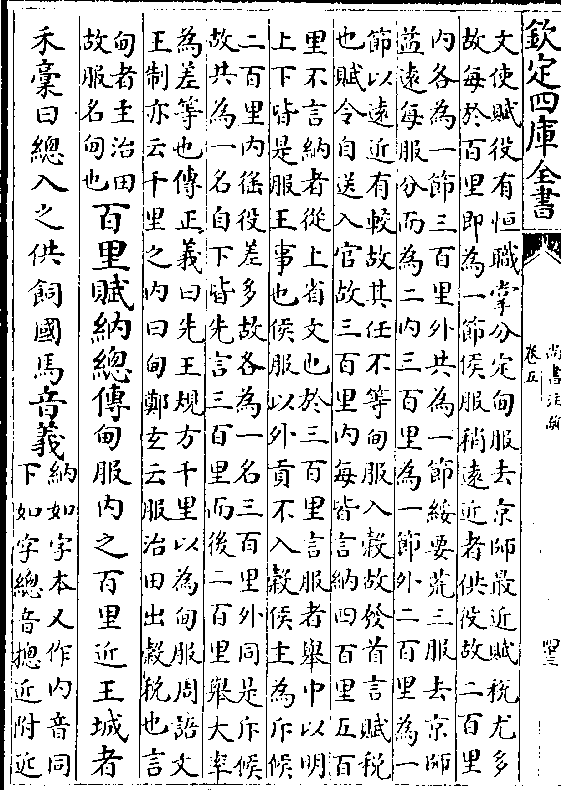 欽定四庫全書
尚書注疏
卷五
文使賦役有恒職掌分定甸服去京師最近賦稅尤多
故每於百里即為一節侯服稍遠近者供役故二百里
內各為一節三百里外共為一節綏要荒三服去京師
益遠每服分而為二內三百里為一節外二百里為一
節以遠近有較故其任不等甸服入穀故發首言賦稅
也賦令自送入官故三百里內每皆言納四百里五百
里不言納者從上省文也於三百里言服者舉中以明
上下皆是服王事也侯服以外貢不入穀侯主為斥候
二百里內徭役差多故各為一名三百里外同是斥候
故共為一名自下皆先言三百里而後二百里舉大率
為差等也傳正義曰先王規方千里以為甸服周語文
王制亦云千里之內曰甸鄭玄云服治田出穀稅也言
甸者主治田
故服名甸也
百里賦納總傳甸服內之百里近王城者
禾稾曰總入之供飼國馬音義
納如字本又作內音同
下如字總音揔近附近